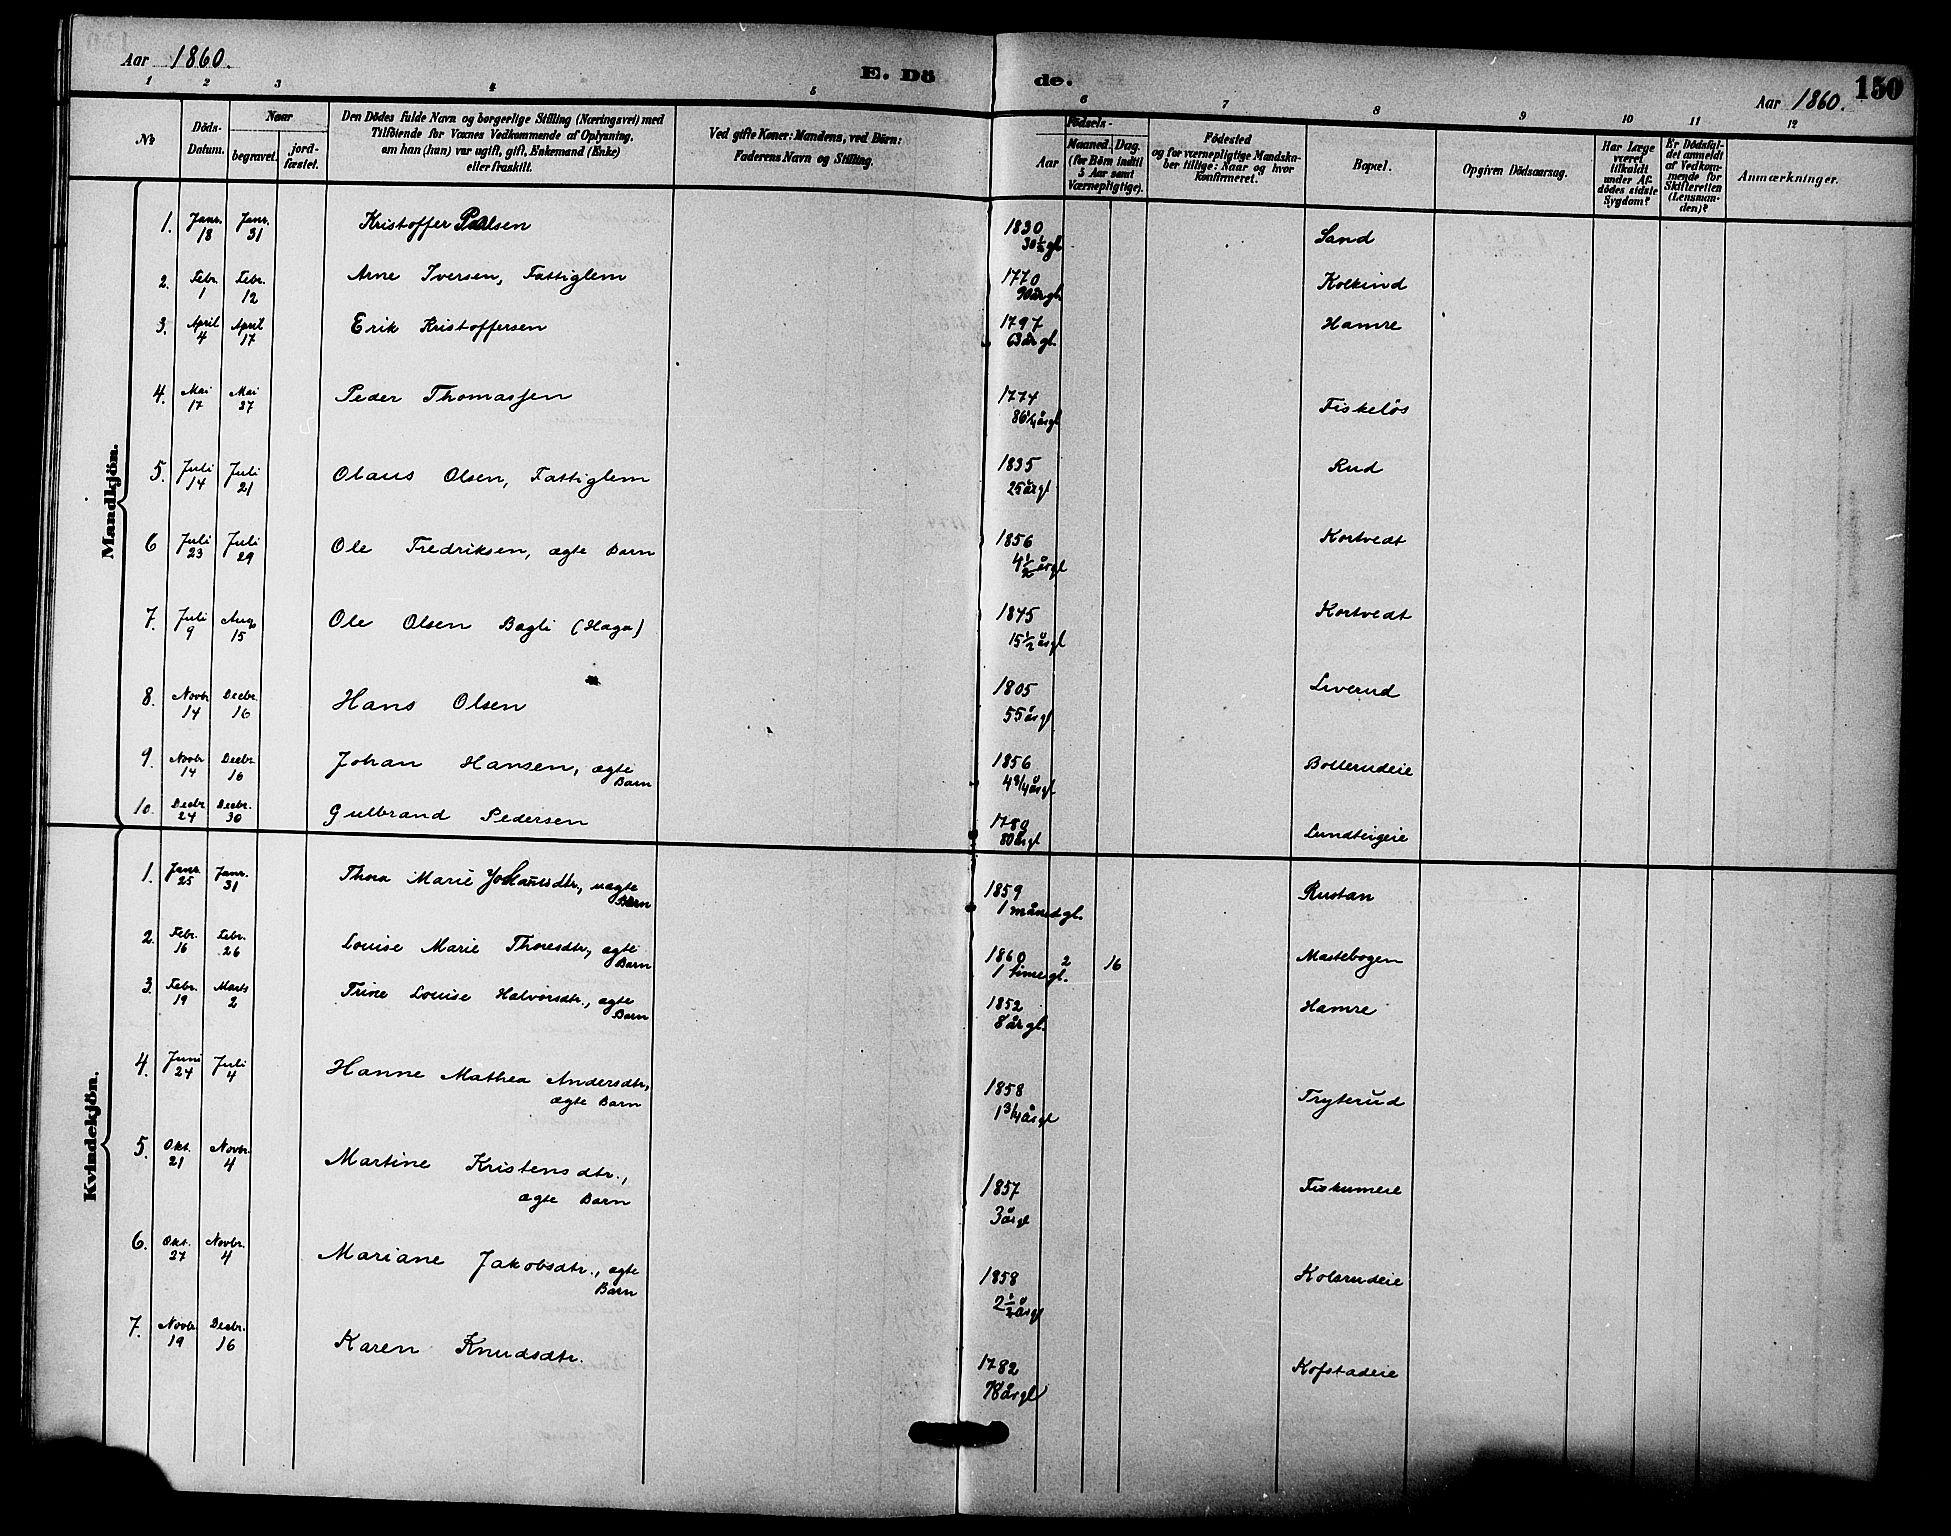 Aar 1860.
E. Döde.
Aar 1860.
150
1 2 3 4 5 6 7 8 9 10 11 12
No
Döds-Datum.
Naar
begravet.
jord-fæstet.
Den Dödes fulde Navn og borgerlige Stilling (Næringsvei) med
Tilföiende for Voxnes Vedkommende af Oplysning,
om han (hun) var ugift, gift, Enkemand (Enke)
eller fraskilt.
Ved gifte Koner: Mandens, ved Börn:
Faderens Navn og Stilling.
Födsels-
Aar
Maaned. Dag.
(for Börn indtil
5 Aar samt
Værnepligtige).
Födested
og for værnepligtige Mandska-
ber tillige: Naar og hvor
konfirmeret.
Bopæl.
Opgiven Dödsaarsag.
Har Læge
været
tilkaldt
under Af-
dödes sidste
Sygdom?
Er Dödsfal-
det anmeldt
af Vedkom-
mende for
Skifteretten
(Lensman-
den)?
Anmærkninger.
Mandkjön.
1. Janr. 18 Janr. 31 Kristoffer Paalsen 1830 30 1/2 gl. Sand
2. Febr. 1 Febr. 12 Arne Iversen, Fattiglem 1770 90 år gl. Kolkind
3. April 4 April 17 Erik Kristoffersen 1797 63 år gl. Hamre
4. Mai 17 Mai 27 Peder Thomassen 1774 86 1/4 år gl Fiskelös
5. Juli 14 Juli 21 Olaus Olsen, Fattiglem 1835 25 år gl Rud
6 Juli 23 Juli 29 Ole Fredriksen, ægte Barn 1856 4 1/2 år gl Kortvedt
7. Juli 9 Aug 15 Ole Olsen Bagli (Haga) 1845 15 1/2 år gl Kortvedt
8. Novbr 14 Decbr. 16 Hans Olsen 1805 55 år gl Liverud
9. Novbr 14 Decbr. 16 Johan Hansen, ægte Barn 1856 4 3/4 år gl. Bollerudeie
10. Decbr 24 Decbr. 30 Gulbrand Pedersen 1780 80 år gl Lundteigeie
Kvindekjön.
1. Janr. 25 Janr. 31 Thora Marie Johansdtr., uægte Barn 1859 1 måned gl. Rustan
2. Febr. 16 Febr. 26 Louise Marie Thoresdtr, ægte Barn 1860 1 time gl. 2 16 Mastebogen
3. Febr. 19 Marts 2 Trine Louise Halvorsdtr., ægte Barn 1852 8 år gl. Hamre
4. Juni 24 Juli 4 Hanne Mathea Andersdtr, ægte Barn 1858 1 3/4 år gl Tryterud
5. Okt. 21 Novbr. 4 Martine Kristensdtr., ægte Barn 1857 3 år gl Fiskumeie
6. Okt. 27 Novbr. 4 Mariane Jakobsdtr., ægte Barn 1858 2 1/2 år gl Kolsrudeie
7. Novbr. 19 Decbr. 16 Karen Knudsdtr. 1782 78 år gl Kofstadeie